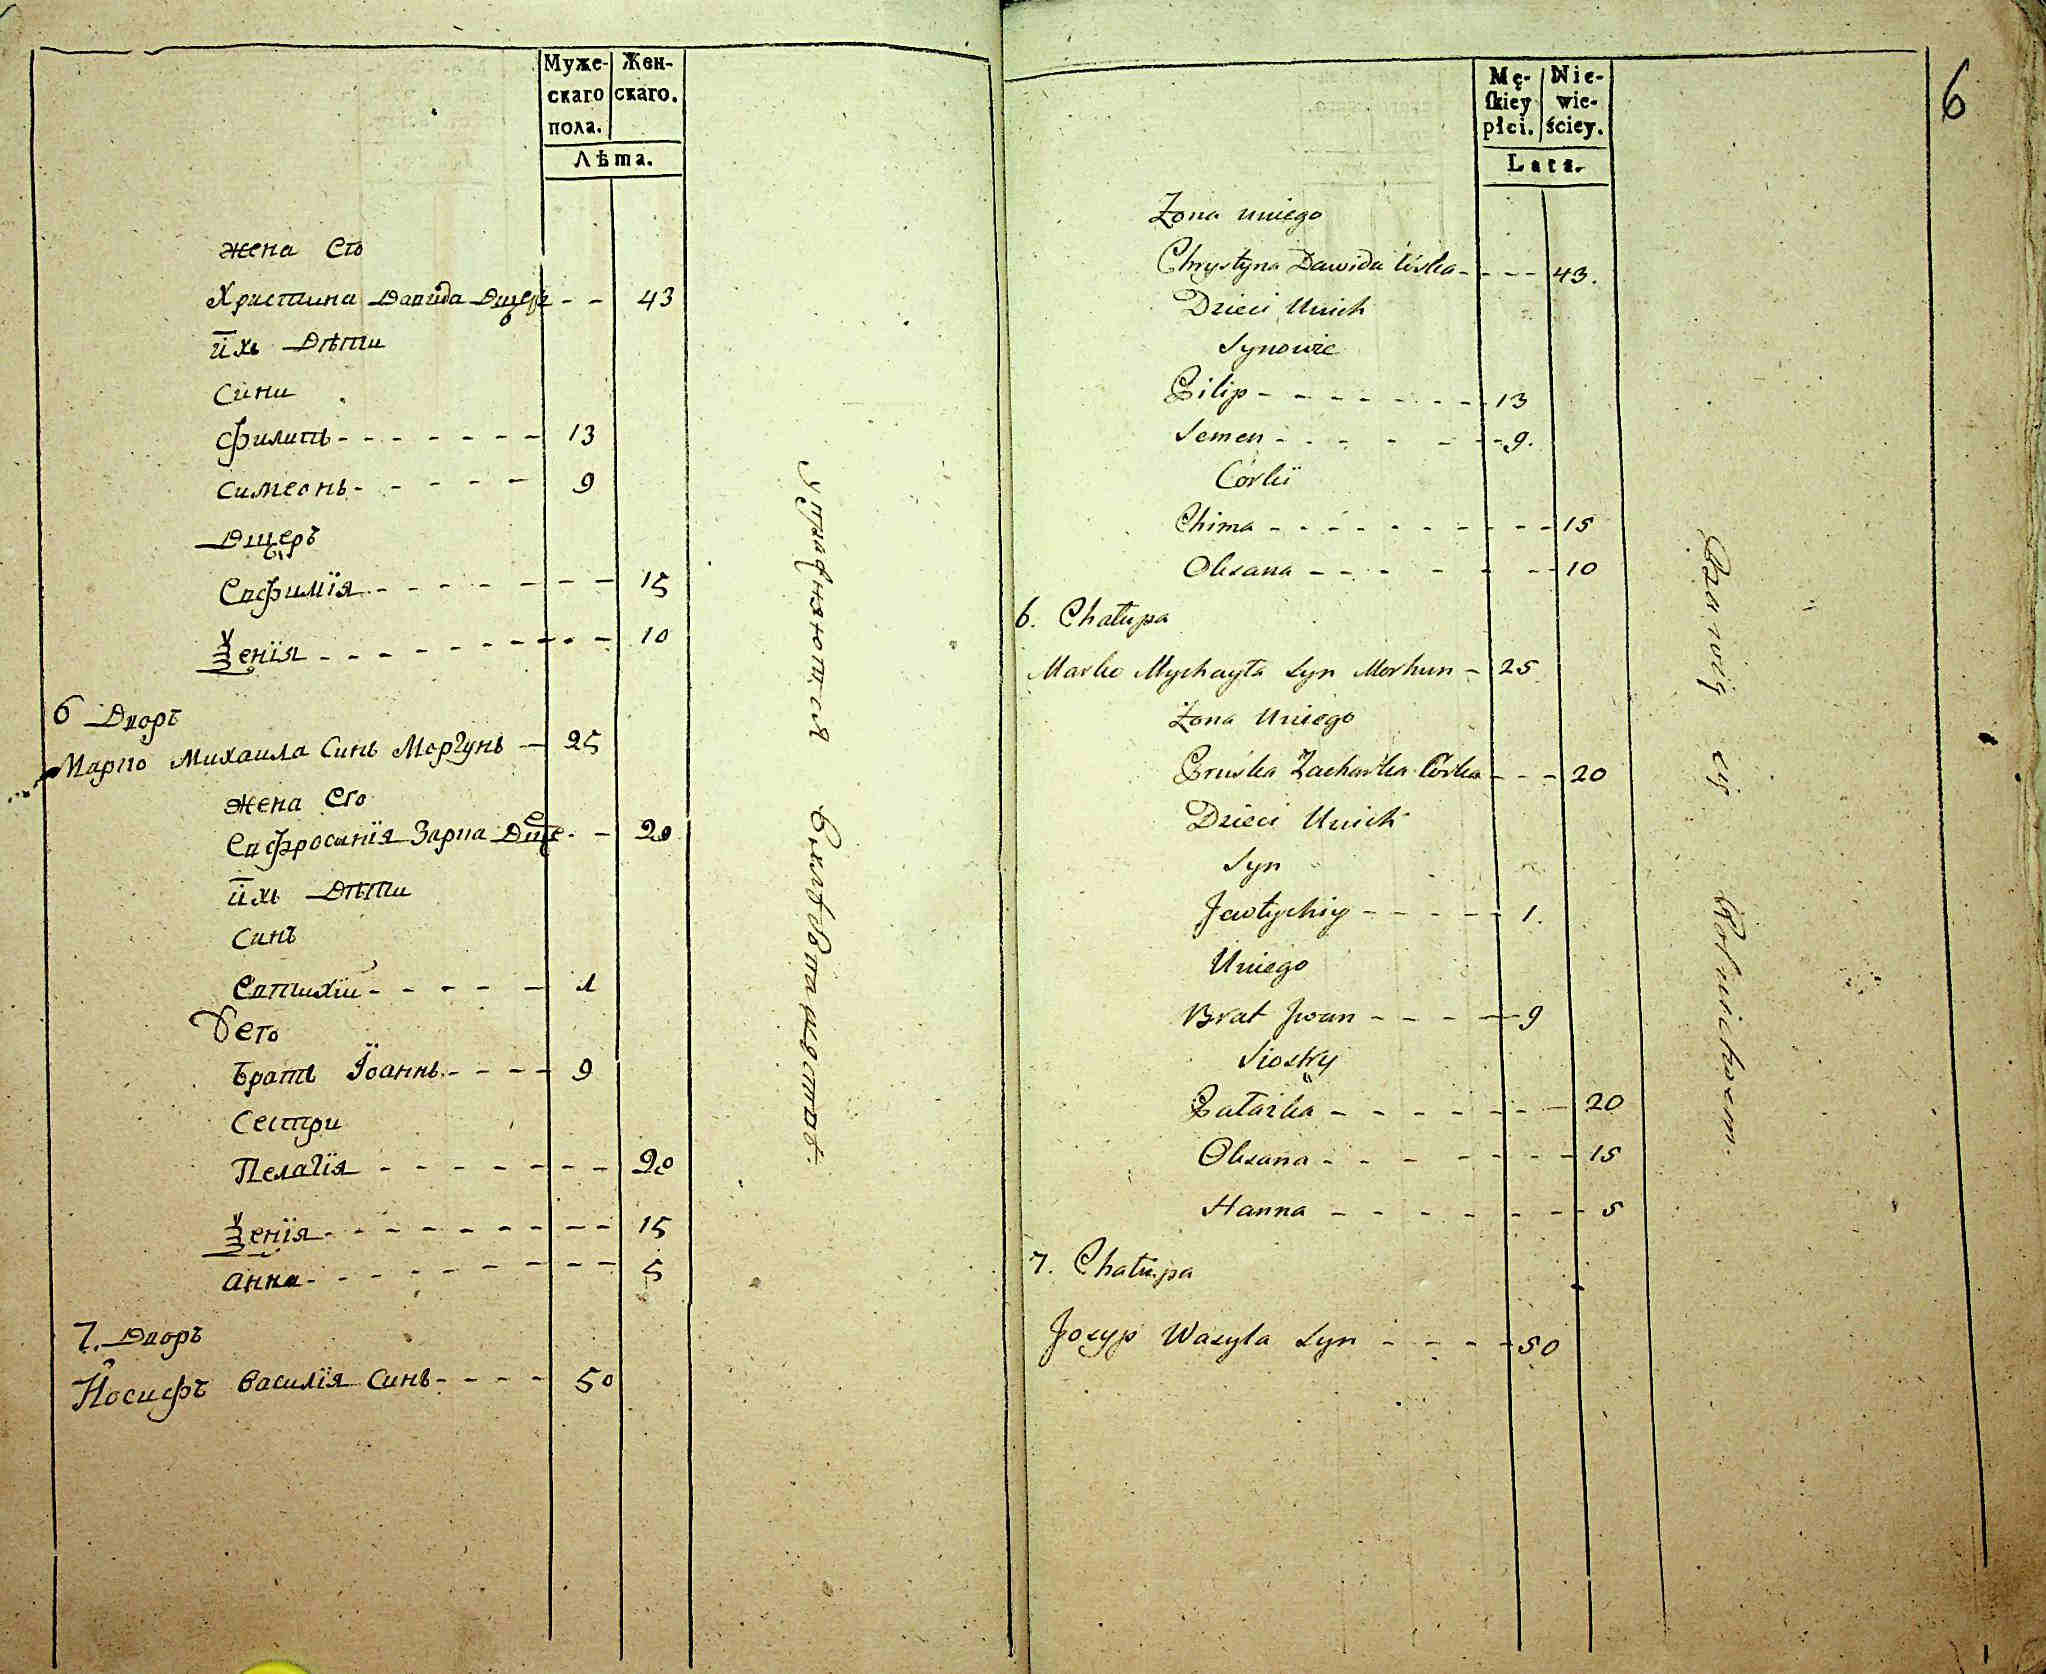 Муже-
скаго
пола.
Жен-
скаго.
Лѣта.
жена Єго
Христина Давида Дщерь - - 43
ихъ Дѣти
Сини
Филипъ - - - - - - - 13
Симеонъ - - - - - 9
Дщеръ
Евфимїя - - - - - - - - 15
Ѯенїя - - - - - - - - - - 10
6 Дворъ
Марко Михаила Синъ Моргунъ - 25
жена Єго
Евфросинїя Дще - - 20
ихъ Дѣти
Синъ
Евтихїй - - - - - 1
Уего
Братъ Їоаннъ - - - - 9
Сестри
Пелагїя - - - - - - - 20
Ѯенїя - - - - - - - - - 15
Анна - - - - - - - - - 5
7. Дворъ
Йосифъ Василїя Синъ - - - - 50
упражняются
6
Mę-
ſkiey
płci.
Nie-
wie-
ściey.
Lata.
Żona uniego
Chrystyna Dawida Córka - - - - 43.
Dzieci Unich
Synowie
Pilip - - - - - - - - 13
Semen - - - - - - - 9.
Córki
Chima - - - - - - - - - 15
Oksana - - - - - - - 10
6. Chałupa
Marko Mychayła Syn Morhun - 25
Żona Uniego
Pruśka Zacharka Córka - - - 20
Dzieci Unich
Syn
Jewtychiy - - - - - 1.
Uniego
Brat Jwan - - - - - 9
Siostry
Pałażka - - - - - - - - 20
Oksana - - - - - - - 15
Hanna - - - - - - - - 5
7. Chałupa
Josyp Wasyla Syn - - - - 50
Bawią się Rolnictwem.